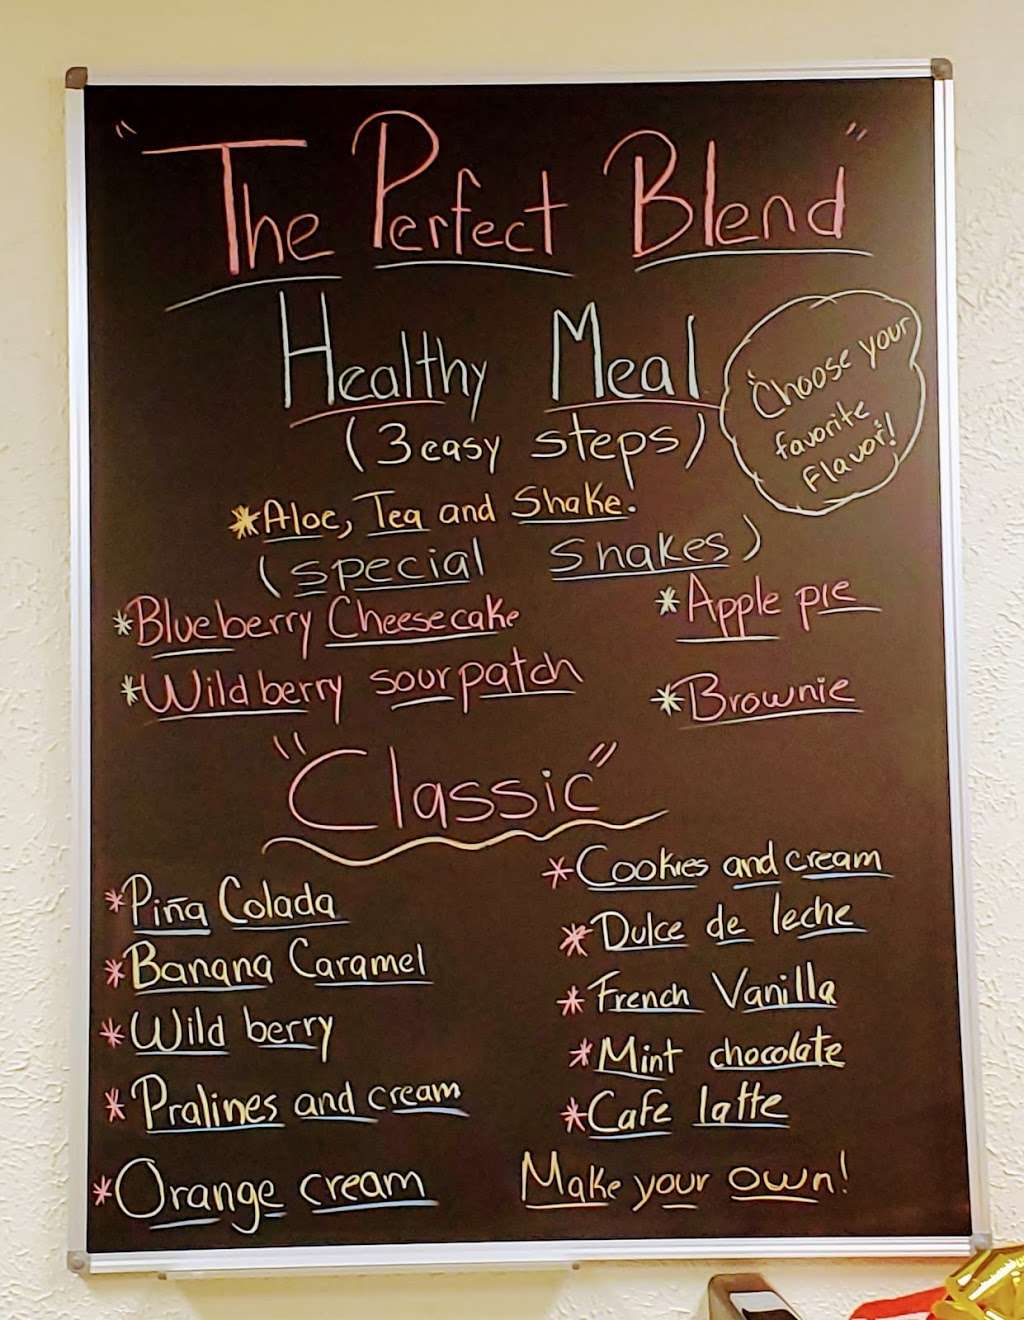 "The Perfect Blend"
Healthy Meal
(3 easy steps)
"Choose your
favorite
Flavor"!
*Aloe, Tea and Shake.
(special shakes)
*Blueberry Cheesecake
*Wildberry sour patch
*Apple pie
*Brownie
"Classic"
*Piña Colada
*Banana Caramel
*Wild berry
*Pralines and cream
*Orange cream
*Cookies and cream
*Dulce de leche
*French Vanilla
*Mint chocolate
*Cafe latte
Make your own!